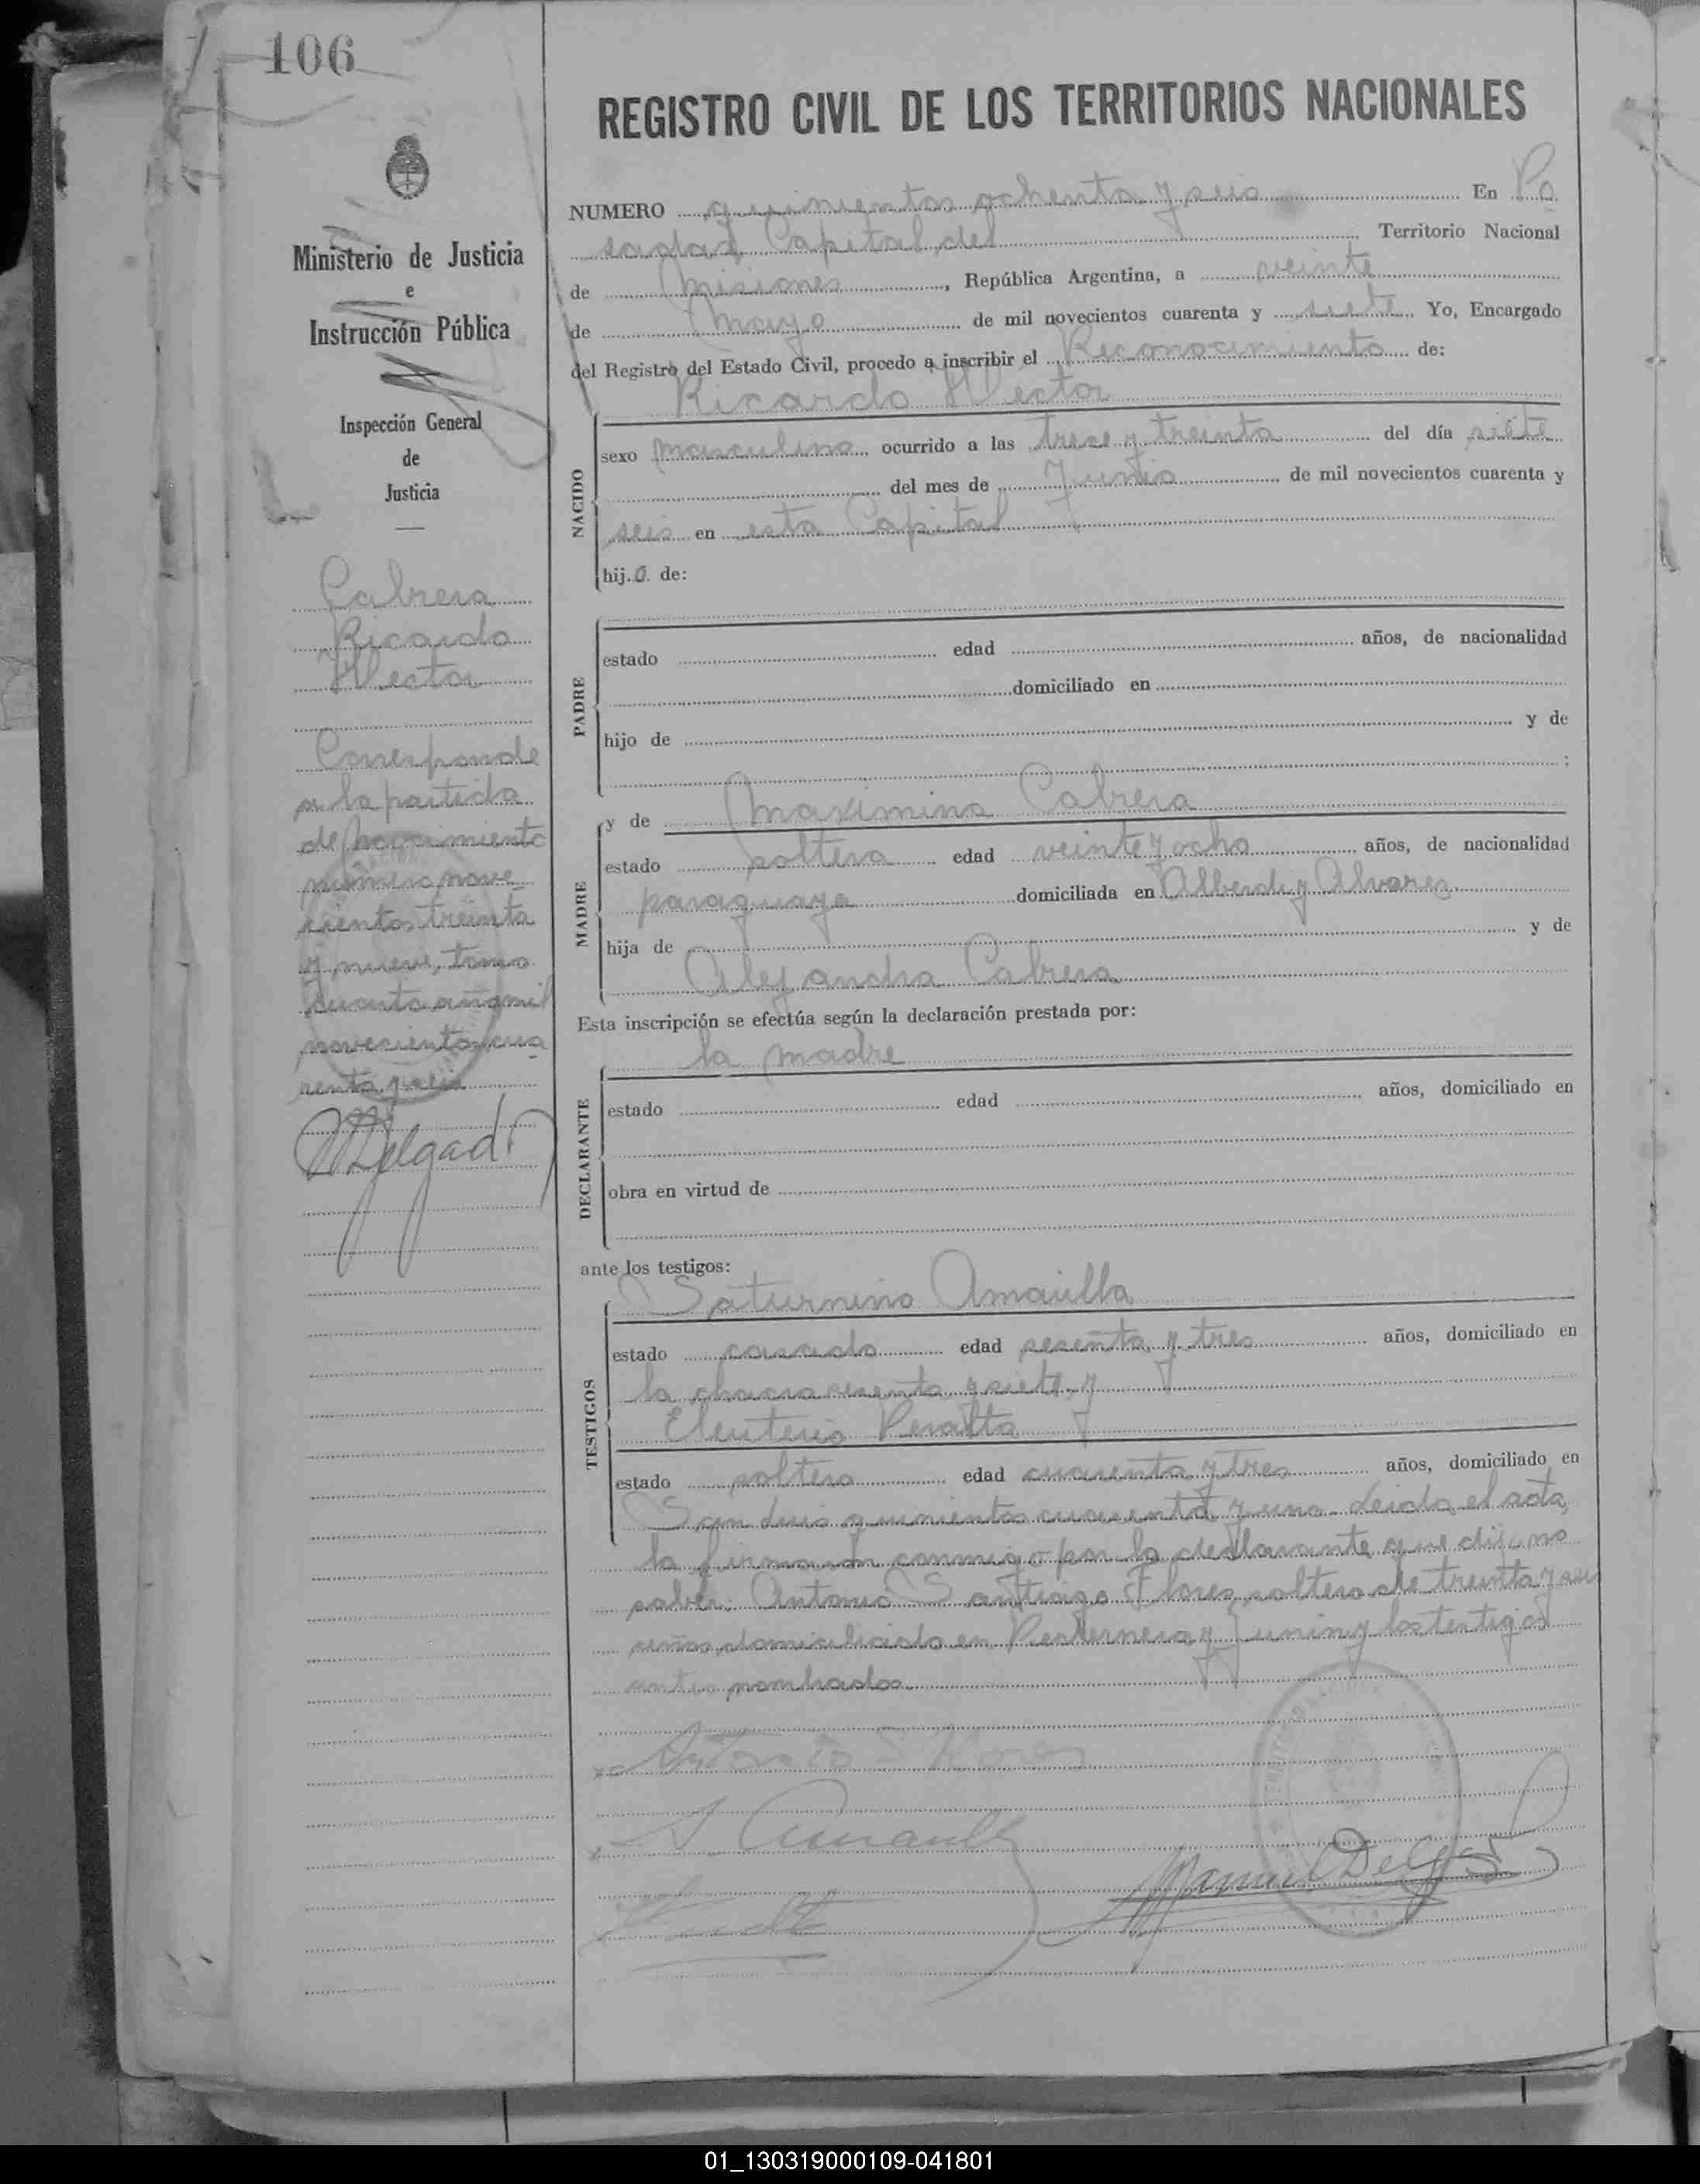 106
Ministerio de Justicia
e
Instrucción Pública
Inspección General
de
Justicia
Cabrera
Ricardo
Hector
Corresponde
a la partida
de nacimiento
número nove
cientos treinta
y nueve, tomo
cuarto año mil
novecientos cua
renta y seis
MDelgado
REGISTRO CIVIL DE LOS TERRITORIOS NACIONALES
NUMERO quinientos ochenta y seis En Po
sadas, Capital del Territorio Nacional
de Misiones, República Argentina, a veinte
de Mayo de mil novecientos cuarenta y siete Yo, Encargado
del Registro del Estado Civil, procedo a inscribir el Reconocimiento de:
Ricardo Hector
NACIDO
sexo masculino ocurrido a las trece y treinta del día siete
del mes de Junio de mil novecientos cuarenta y
seis en esta Capital
hij.o. de:
PADRE
estado edad años, de nacionalidad
domiciliado en
hijo de y de
;
MADRE
y de Maximina Cabrera
estado soltera edad veinte y ocho años, de nacionalidad
paraguaya domiciliada en Alberdi y Alvarez
hija de y de
Alejandra Cabrera
Esta inscripción se efectúa según la declaración prestada por:
la madre
DECLARANTE
estado edad años, domiciliado en
obra en virtud de
ante los testigos:
Saturnino Amarilla
TESTIGOS
estado casado edad sesenta y tres años, domiciliado en
la chacra sesenta y siete, y
Eleuterio Peralta
estado soltero edad cuarenta y tres años, domiciliado en
San Luis quinientos cuarenta y uno. Leida el acta,
la firmaron conmigo por la declarante que dijo no
saber: Antonio Santiago Flores, soltero de treinta y seis
años, domiciliado en Pedernera y Junin y los testigos
antes nombrados.
Antonio S Flores
S. Amarilla
Manuel Delgado
01_130319000109-041801